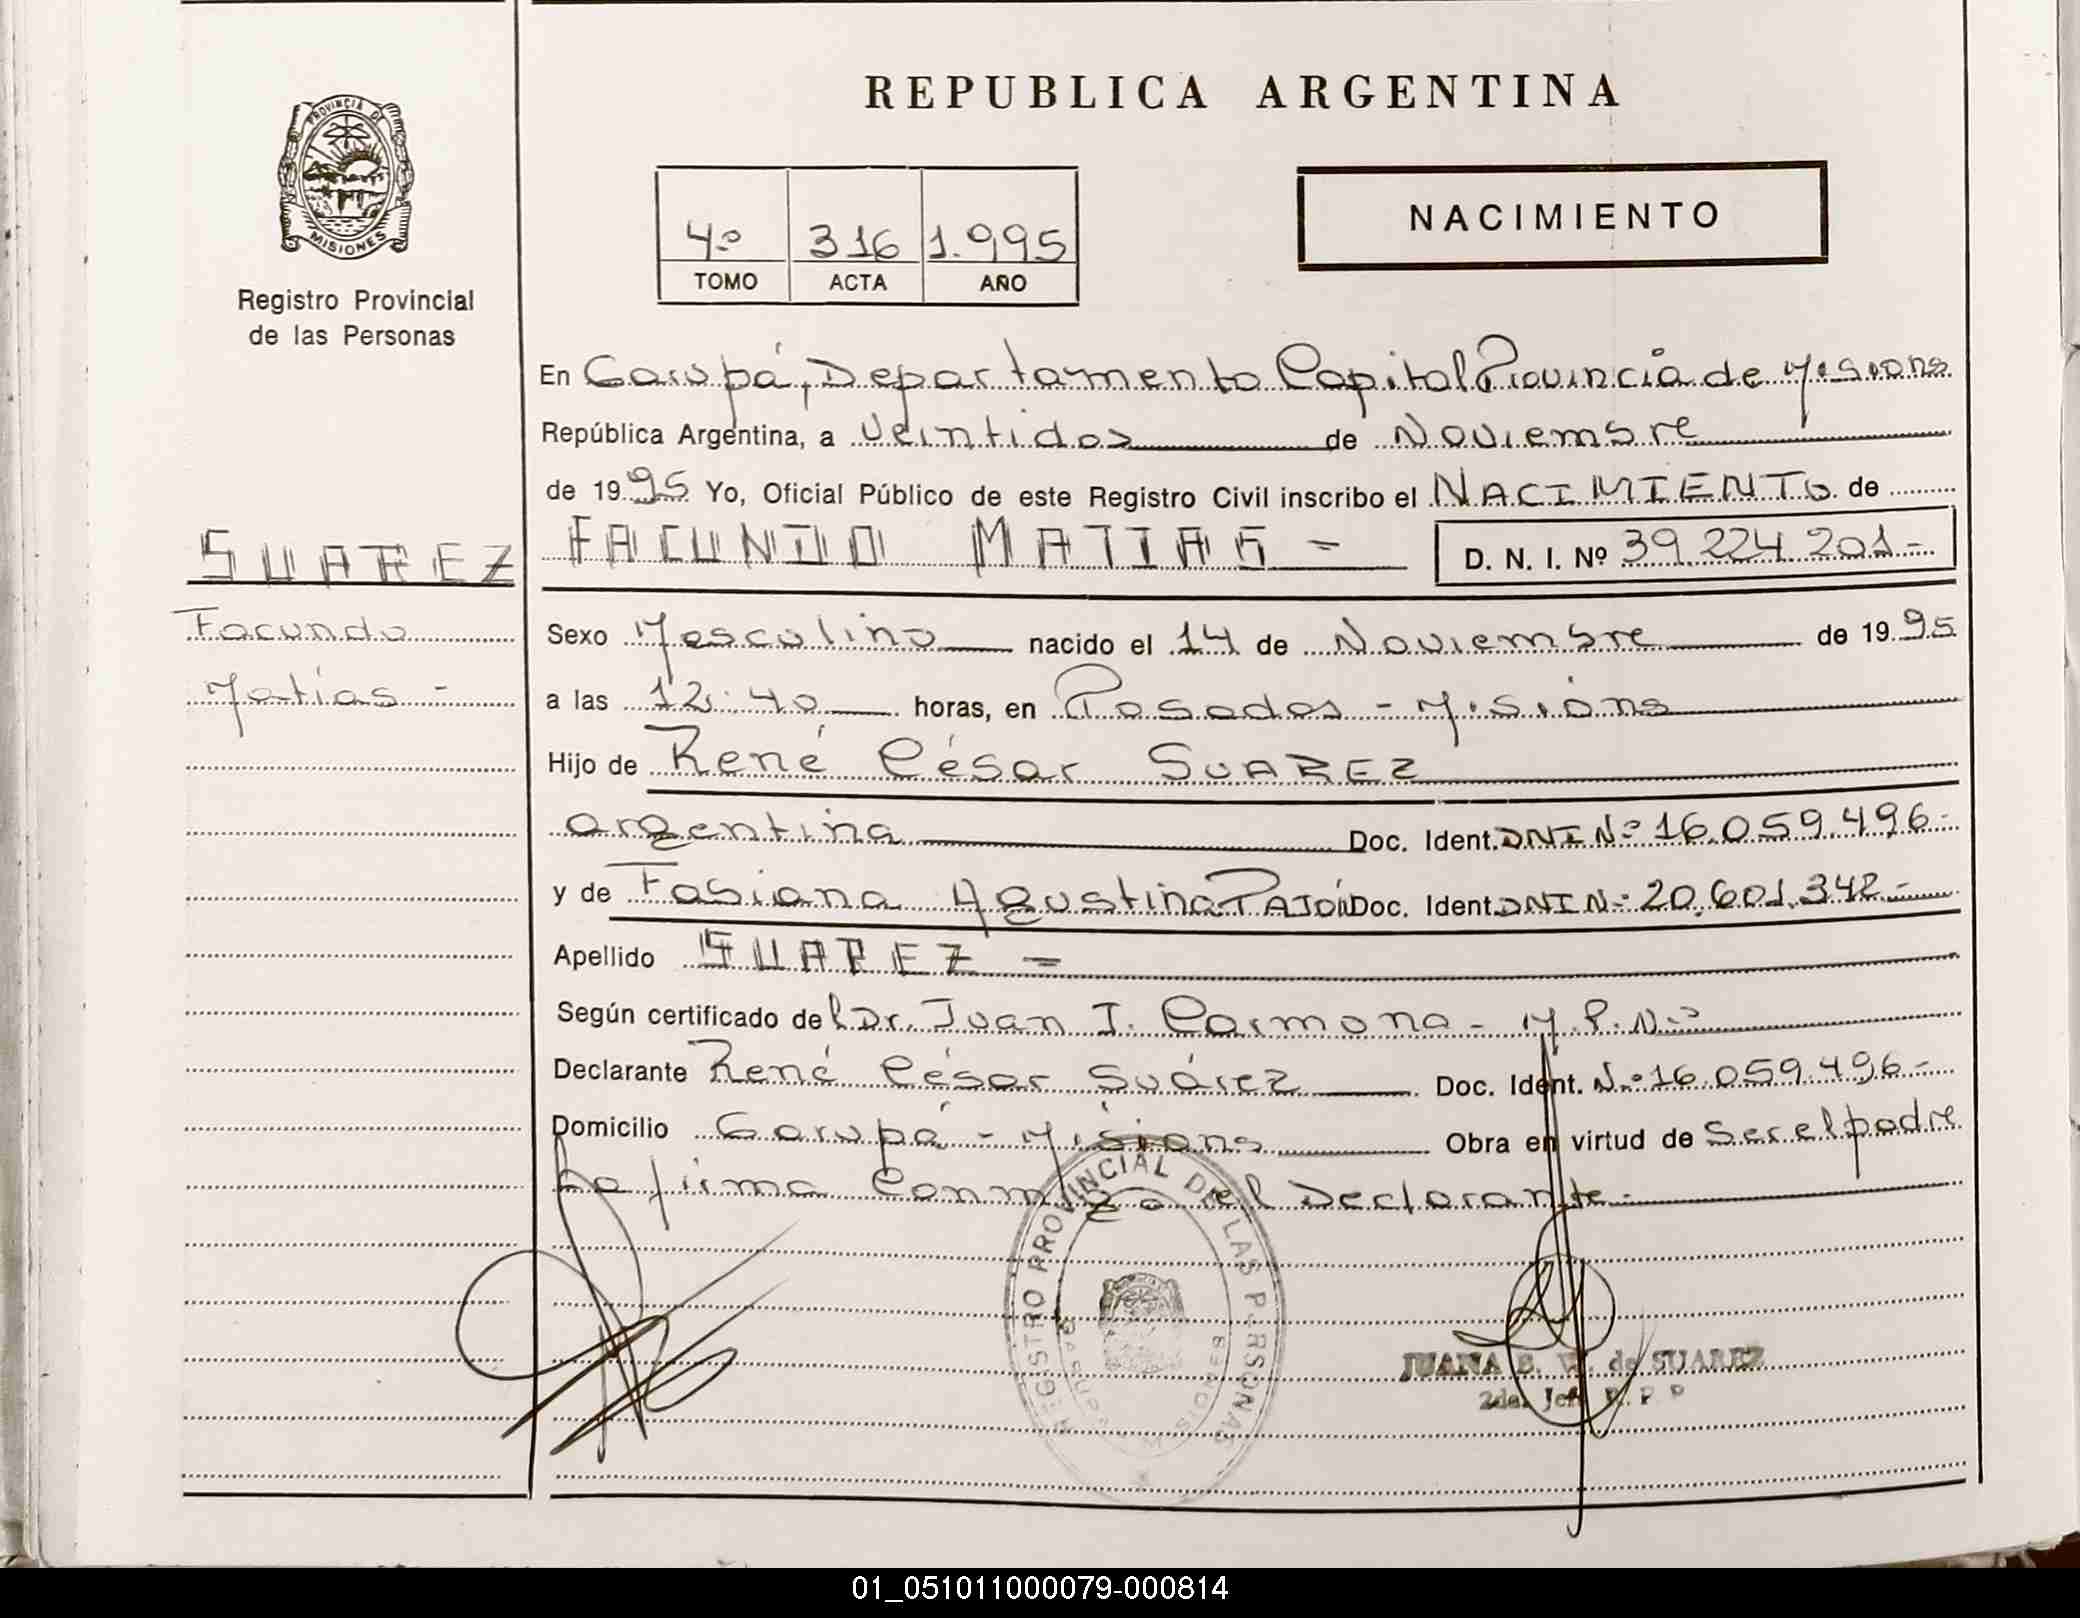 REPUBLICA ARGENTINA
PROVINCIA DE
MISIONES
Registro Provincial
de las Personas
4º 316 1.995
TOMO ACTA AÑO
NACIMIENTO
En Garupá, Departamento Capital Provincia de Misiones
República Argentina, a Veintidos de Noviembre
de 1995 Yo, Oficial Público de este Registro Civil inscribo el NACIMIENTO de
SUAREZ
FACUNDO MATIAS - D. N. I. Nº 39.224.201-
Facundo
Matías -
Sexo Masculino nacido el 14 de Noviembre de 1995
a las 12:40 horas, en Posadas - Misiones
Hijo de René César SUAREZ
argentina Doc. Ident. DNI Nº 16.059.496-
y de Fabiana Agustina PAJÓN Doc. Ident. DNI Nº 20.601.342-
Apellido SUAREZ -
Según certificado del Dr. Juan I. Carmona - M.P.Nº
Declarante René César Suárez Doc. Ident. Nº 16.059.496-
Domicilio Garupá - Misiones Obra en virtud de Ser el padre
La firma Conmigo el Declarante-
REGISTRO PROVINCIAL DE LAS PERSONAS
JUANA E. W. de SUAREZ
2da. Jefe R. P. P
01_051011000079-000814